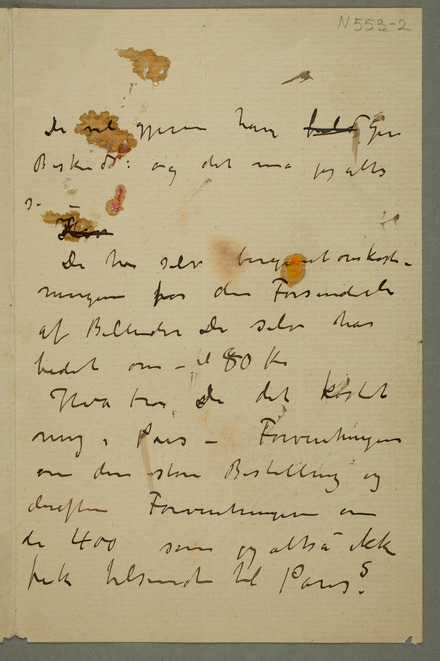 N 553-2
De vil gjerne ha
Beskéd: og det må jeg altså
De har selv beregnet omkost-
ningen for den Forsendelse
af Billeder De selv har
bedet om – til 80 Kr
Hva tror De det kostet
mig i Paris – Forventningen
om den store Bestilling og
derefter Forventningen om
de 400 som jeg altså ikke
fik tilsendt til Paris?